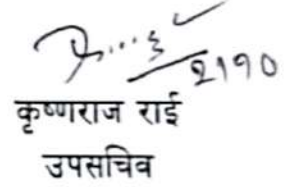 २११०
कृष्णराज राई
उपसचिव